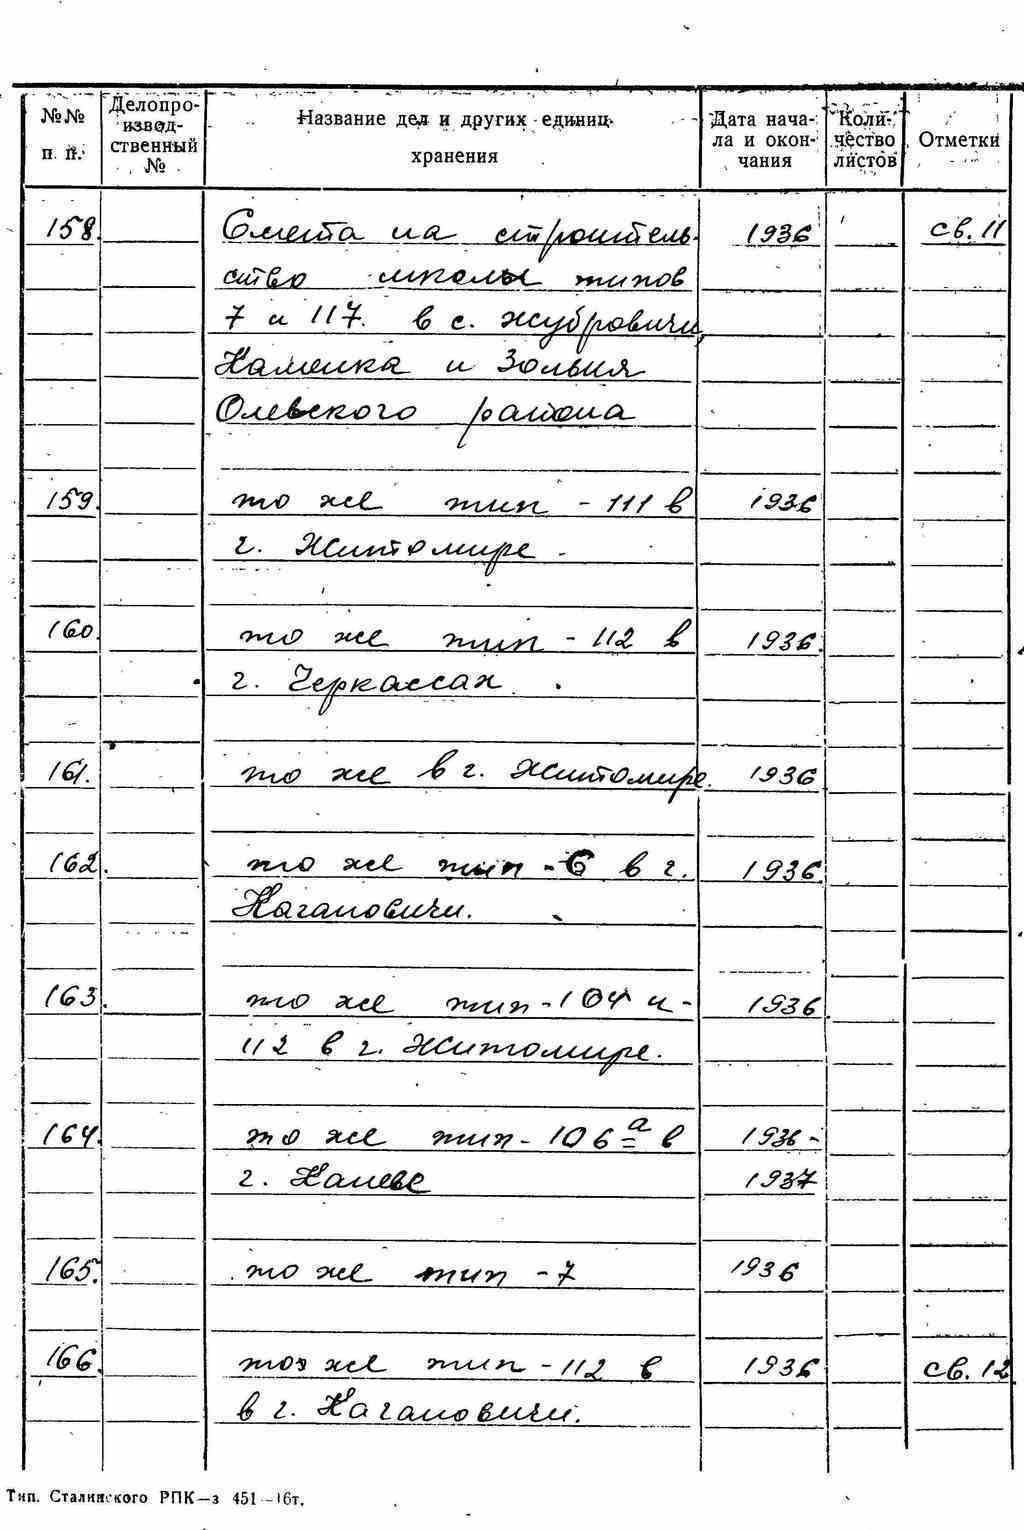 №№ п. п.
Делопро-
извод-
ственный
№
Название дел и других единиц
хранения
Дата нача-
ла и окон-
чания
Коли-
чество
листов
Отметки
158. Смета на строитель- 1936 св. 11
ство школы типов
7 и 117. в с. Жубровичи,
Каменка и Зольня
Олевского района
159. то же тип - 111 в 1936
г. Житомире.
160. то же тип - 112 в 1936.
г. Черкассах.
161. то же в г. Житомире. 1936
162. то же тип - 6 в г. 1936.
Кагановичи.
163. то же тип - 104 и - 1936.
112 в г. Житомире.
164. то же тип - 106 а в 1936 -
г. Каневе 1937
165. то же тип - 7 1936
166. то же тип - 112 в 1936 св. 12
в г. Кагановичи.
Тип. Сталинского РПК—з 451—16т.